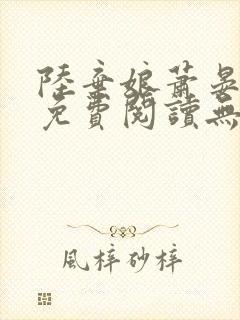 陸棄娘蕭晏
免費閱讀無
風梓砂梓